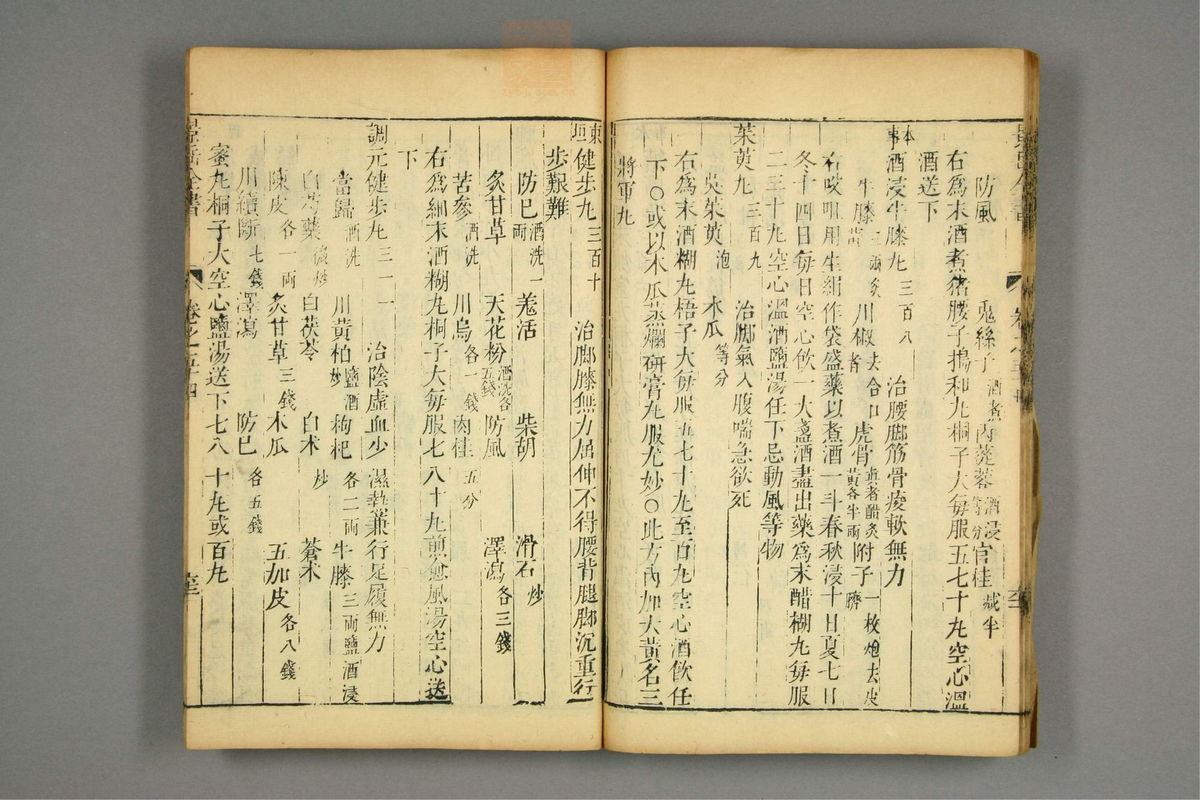 防風 兎絲子酒煮 肉蓯蓉酒浸等分 官桂減半
右爲末酒煮猪腰子搗和丸桐子大每服五七十丸空心溫
酒送下
本事酒浸牛膝丸三百八 治腰脚筋骨痠軟無力
牛膝三兩炙黃 川椒去合口者 虎骨真者醋炙黃各半兩 附子一枚炮去皮臍
右㕮咀用生絹作袋盛藥以煮酒一斗春秋浸十日夏七日
冬十四日每日空心飲一大盞酒盡出藥爲末醋糊丸每服
二三十丸空心溫酒鹽湯任下忌動風等物
茱萸丸三百九 治脚氣入腹喘急欲死
吳茱萸泡 木瓜等分
右爲末酒糊丸梧子大每服五七十丸至百丸空心酒飲任
下○或以木瓜蒸爛研膏丸服尤妙○此方內加大黃名三
將軍丸
東垣健步丸三百十 治脚膝無力屈伸不得腰背腿脚沉重行
步艱難
防巳酒洗一兩 羗活 柴胡 滑石炒
炙甘草 天花粉酒洗各五錢 防風 澤瀉各三錢
苦參酒洗 川烏各一錢 肉桂五分
右爲細末酒糊丸桐子大每服七八十丸煎愈風湯空心送
下
調元健步丸三一一 治陰虛血少濕熱兼行足履無力
當歸酒洗 川黃柏鹽酒炒 枸杞各二兩 牛膝三兩鹽酒浸
白芍藥微炒 白茯苓 白术炒 蒼术
陳皮各一兩 炙甘草三錢 木瓜 五加皮各八錢
川續斷七錢 澤瀉 防巳各五錢
蜜丸桐子大空心鹽湯送下七八十丸或百丸
卷之五十四